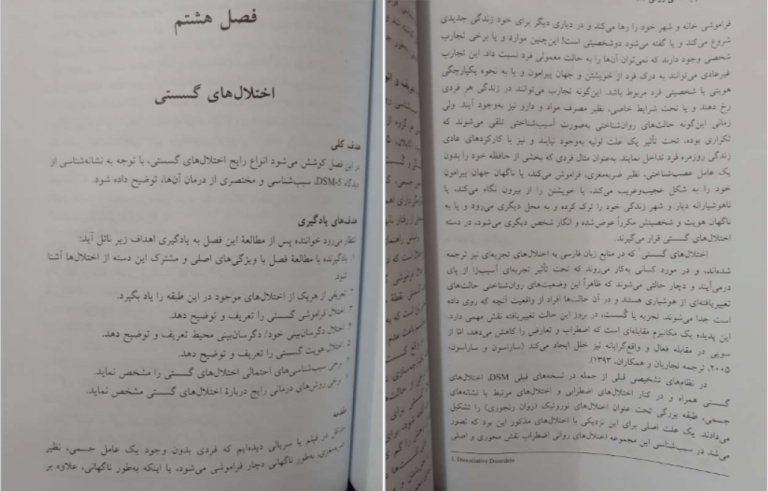 فصل هشتم
اختلال‌های گسستی
هدف کلی
در این فصل کوشش می‌شود انواع رایج اختلال‌های گسستی، با توجه به نشانه‌شناسی از
دیدگاه DSM-5، سبب‌شناسی و مختصری از درمان آن‌ها، توضیح داده شود.
هدف‌های یادگیری
انتظار می‌رود خواننده پس از مطالعهٔ این فصل به یادگیری اهداف زیر نائل آید:
۱. یادگیرنده با مطالعهٔ فصل با ویژگی‌های اصلی و مشترک این دسته از اختلال‌ها آشنا
شود.
۲. تعریفی از هریک از اختلال‌های موجود در این طبقه را یاد بگیرد.
۳. اختلال فراموشی گسستی را تعریف و توضیح دهد.
۴. اختلال دگرسان‌بینی خود/ دگرسان‌بینی محیط تعریف و توضیح دهد.
۵. اختلال هویت گسستی را تعریف و توضیح دهد.
۶. برخی سبب‌شناسی‌های احتمالی اختلال‌های گسستی را مشخص نماید.
۷. برخی روش‌های درمانی رایج دربارهٔ اختلال‌های گسستی مشخص نماید.
مقدمه
در فیلم یا سریالی دیده‌ایم که فردی بدون وجود یک عامل جسمی، نظیر
ضربه‌مغزی، به‌طور ناگهانی دچار فراموشی می‌شود، یا اینکه به‌طور ناگهانی، علاوه بر
فراموشی خانه و شهر خود را رها می‌کند و در دیاری دیگر برای خود زندگی جدیدی
شروع می‌کند و یا گفته می‌شود دوشخصیتی است! این‌چنین موارد و یا برخی تجارب
شخصی وجود دارند که نمی‌توان آن‌ها را به حالت معمولی فرد نسبت داد. این تجارب
غیرعادی می‌توانند به درک فرد از خویشتن و جهان پیرامون و یا به نحوه یکپارچگی
هویتی یا شخصیتی فرد مربوط باشد. این‌گونه تجارب می‌توانند در زندگی هر فردی
رخ دهند و یا تحت شرایط خاصی، نظیر مصرف مواد و دارو نیز به‌وجود آیند. ولی
زمانی این‌گونه حالت‌های روان‌شناختی به‌صورت آسیب‌شناختی تلقی می‌شوند که
تکراری بوده، تحت تأثیر یک علت اولیه به‌وجود نیایند و نیز با کارکردهای عادی
زندگی روزمره فرد تداخل نمایند. به‌عنوان مثال فردی که بخشی از حافظه خود را بدون
یک عامل عصب‌شناختی، نظیر ضربه‌مغزی، فراموش می‌کند، یا ناگهان جهان پیرامون
خود را به شکل عجیب‌وغریب می‌کند، یا خویشتن را از بیرون نگاه می‌کند، یا
ناهوشیارانه دیار و شهر زندگی خود را ترک کرده و به محل دیگری می‌رود و یا به
ناگهان هویت و شخصیتش مکرراً عوض‌شده و انگار شخص دیگری می‌شود، در دسته
اختلال‌های گسستی قرار می‌گیرند.
اختلال‌های گسستی¹ که در منابع زبان فارسی به اختلال‌های تجزیه‌ای نیز ترجمه
شده‌اند، و در مورد کسانی به‌کار می‌روند که تحت تأثیر تجربه‌ای آسیب‌زا از پای
درمی‌آیند و دچار حالتی می‌شوند که ظاهراً این وضعیت‌های روان‌شناختی حالت‌های
تغییریافته‌ای از هوشیاری هستند و در آن حالت‌ها افراد از واقعیت آنچه که روی داده
است جدا می‌شوند. تجزیه یا گسست، در بروز این حالت تغییریافته نقش مهمی دارد.
این پدیده یک مکانیزم مقابله‌ای است که اضطراب و تعارض را کاهش می‌دهد، اما از
سویی در مقابله فعال و واقع‌گرایانه نیز خلل ایجاد می‌کند (ساراسون و ساراسون،
۲۰۰۵، ترجمه نجاریان و همکاران، ۱۳۹۳).
در نظام‌های تشخیصی قبلی از جمله در نسخه‌های قبلی DSM، اختلال‌های
گسستی همراه و در کنار اختلال‌های اضطرابی و اختلال‌های مرتبط با نشانه‌های
جسمی، طبقه بزرگی تحت عنوان اختلال‌های نوروتیک (روان رنجوری) را تشکیل
می‌دادند. یک علت اصلی برای این نزدیکی با اختلال‌های مذکور این بود که تصور
می‌شد در سبب‌شناسی این مجموعه اختلال‌های روانی اضطراب نقش محوری و اصلی
1. Dissociative Disorders